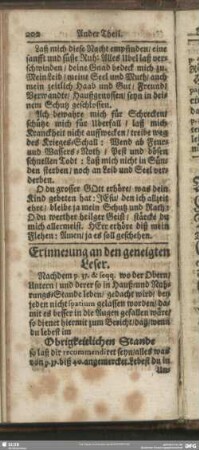 202 Ander Theil.
Laß mich diese Nacht empfinden/ eine
sanfft und süsse Ruh/ Alles Ubel laß ver-
schwinden/ deine Gnad bedeck mich zu.
Mein Leib/ meine Seel und Muth/ auch
mein zeitlich Haab und Gut/ Freund/
Verwandte/ Haußgenossen/ seyn in dei-
nen Schutz geschlossen.
Ach bewahre mich für Schrecken/
schütz mich für Uberfall/ laß mich
Kranckheit nicht auffwecken/ treibe weg
des Krieges Schall: Wend ab Feuer
und Wassers-Noth/ Pest und bösen
schnellen Todt: Laß mich nicht in Sün-
den sterben/ noch an Leib und Seel ver-
derben.
O du grosser GOtt erhöre/ was dein
Kind gebeten hat: JEsu/ den ich allzeit
ehre/ bleibe ja mein Schutz und Rath/
O du werther heilger Geist/ stärcks du
mich allermeist. HErr erhöre diß mein
Flehen: Amen/ ja es soll geschehen.
Erinnerung an den geneigten
Leser.
Nachdem p. 37. & seqq. wo der Obern/
Untern/ und derer so in Hauß-und Nah-
rungs-Stande leben/ gedacht wird/ bey
jeden nicht spatium gelassen worden/ da-
mit es besser in die Augen gefallen wäre/
so dienet hiermit zum Bericht/ daß/ wenn
du lebest im
Obrigkeitlichen Stande
so laß dir recommendiret seyn/ alles was
von p. 37. biß 40. angemercket. Lebest du in